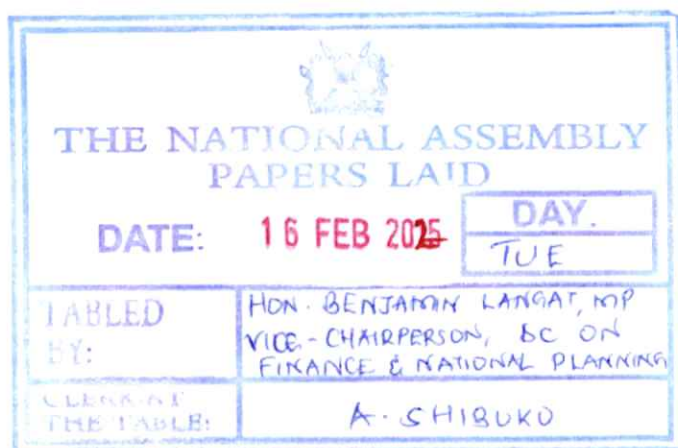 THE NATIONAL ASSEMBLY
PAPERS LAID
DATE: 16 FEB 2025
DAY.
TUE
TABLED BY:
HON. BENJAMIN LANGAT, MP
VICE-CHAIRPERSON, DC ON
FINANCE & NATIONAL PLANNING
CLERK AT THE TABLE:
A. SHIBUKO